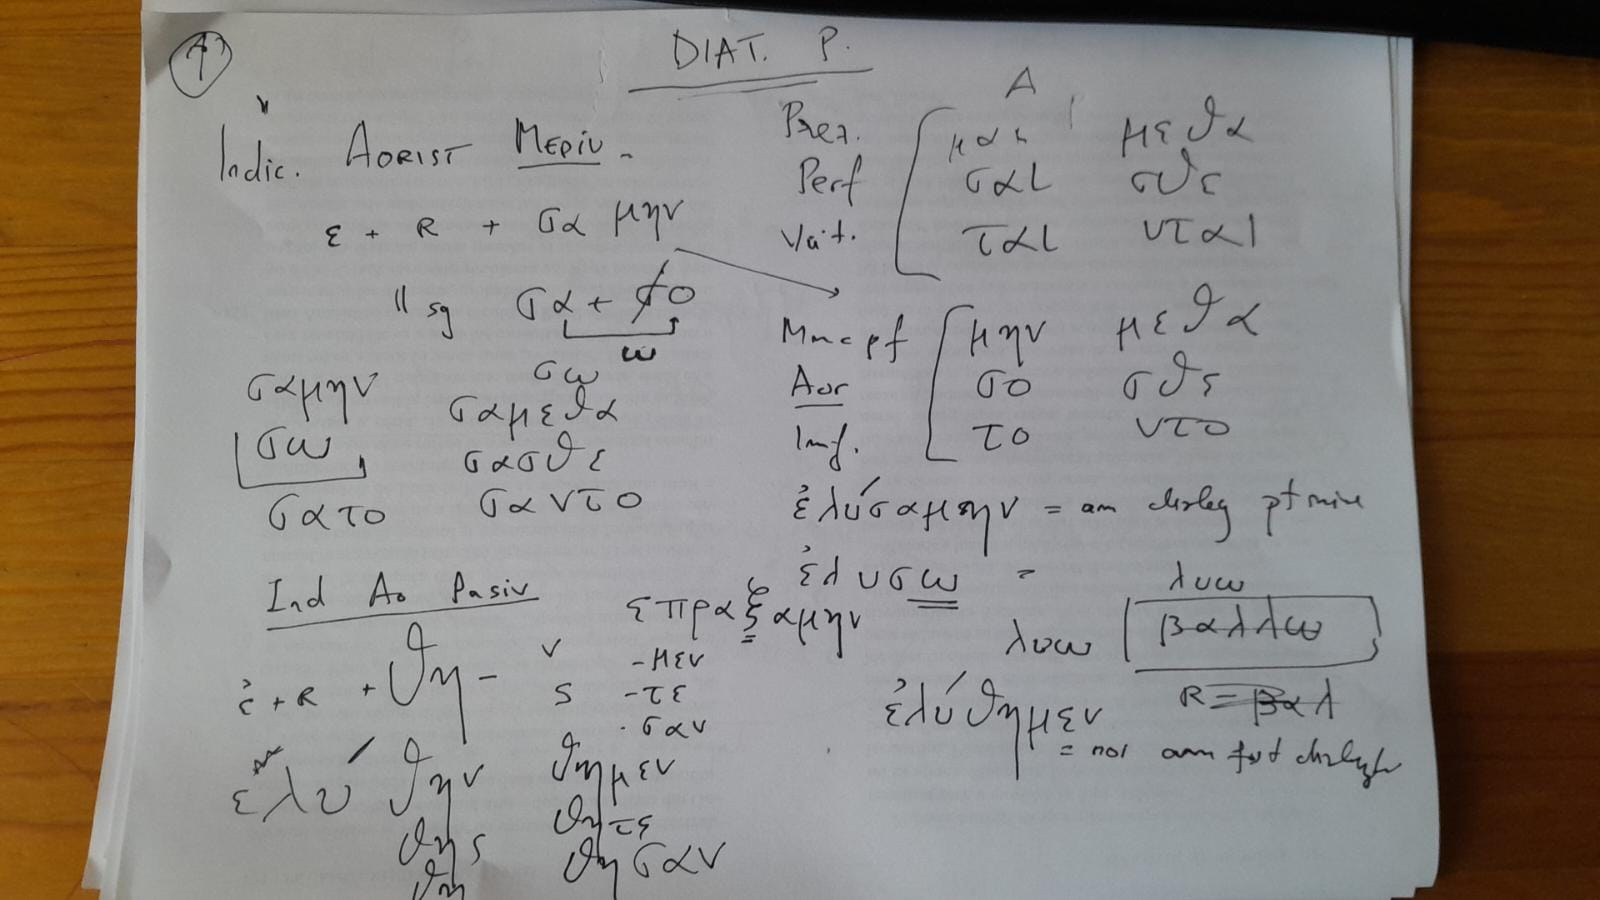 DIAT. P.
Indic. AORIST MEDIU
ε + R + σα μην
II sg σα + σο
ω
σω
σαμην σαμεθα
σω σασθε
σατο σαντο
Ind Ao Pasiv
ἐ + R + θη - ν -μεν
ς -τε
-σαν
ελύ θην θημεν
θης θητε
θη θησαν
A
Prez. μαι μεθα
Perf σαι σθε
Viit. ται νται
Mmcpf μην μεθα
Aor σο σθε
Imf. το ντο
ἐλύσαμην = am dezleg pt mine
ἐλυσω =
επραξαμην
λυω
λυω βαλλω
R = βαλ
ἐλύθημεν
= noi am fost dezlegați